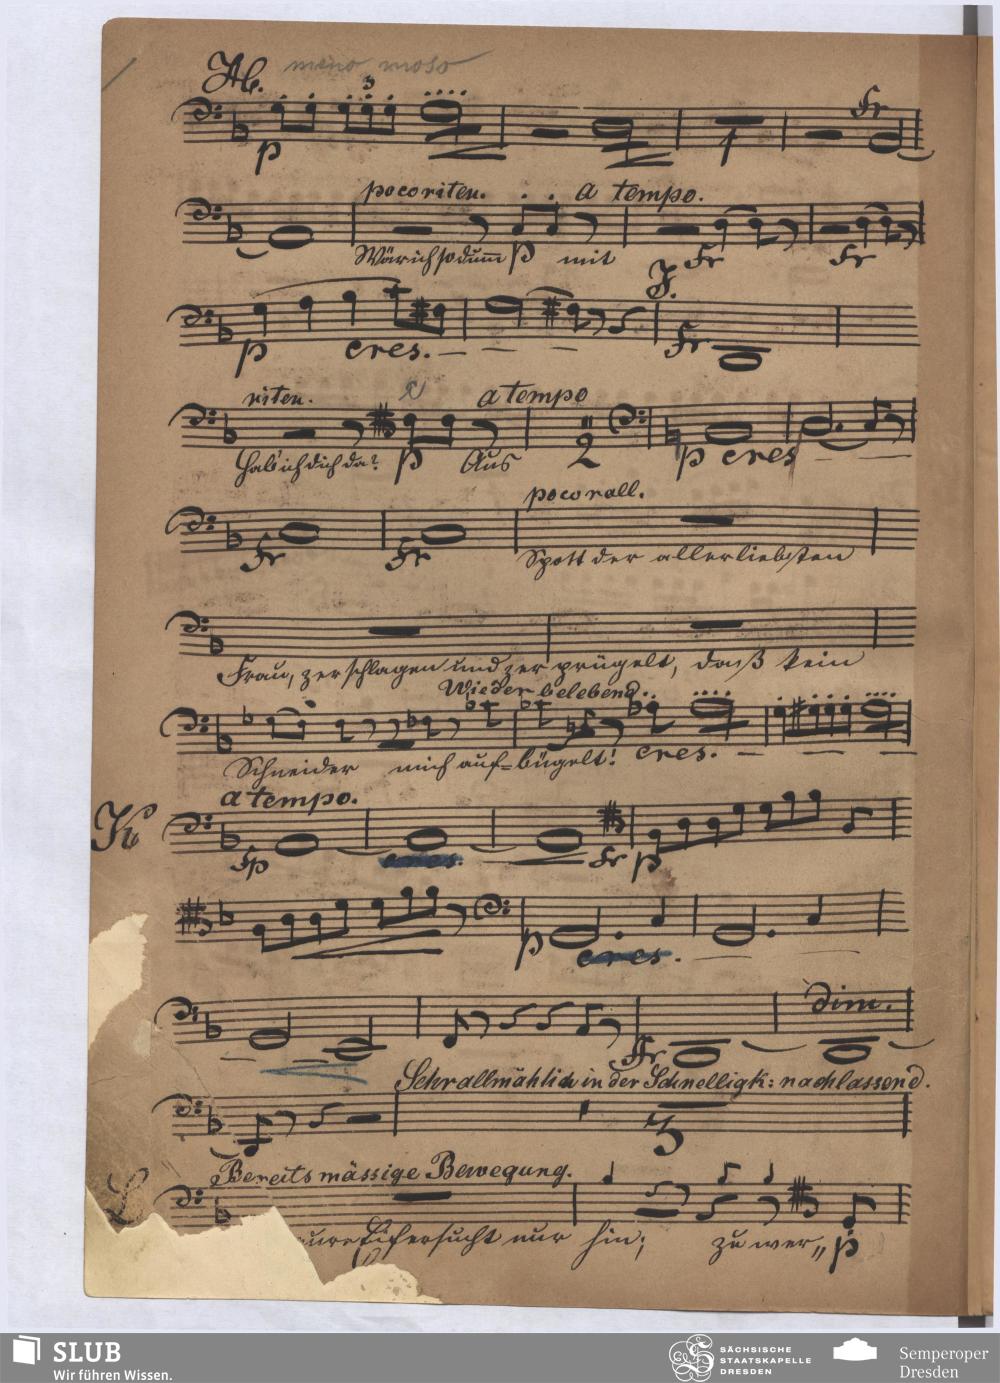 meno moso
3
p
Fr
1
poco riten.
a tempo.
Wär ich so dum̄
p
mit
Fr
Fr
J.
p
cres.
Fr
riten.
a tempo
Hab' ich dich da?
p
Aus
2
p cres
poco rall.
Fr
Fr
Spott der allerliebsten
Frau, zerschlagen und zerprügelt, daß kein
Wieder belebend.
Schneider mich auf=bügelt!
cres.
a tempo.
K
Fp
cres.
Fr
p
p
cres.
dim.
Sehr allmählich in der Schnelligk: nachlassend.
3
Bereits mässige Bewegung.
Eifersucht nur hin;
zu wer„
p
SLUB
Wir führen Wissen.
SÄCHSISCHE
STAATSKAPELLE
DRESDEN
Semperoper
Dresden